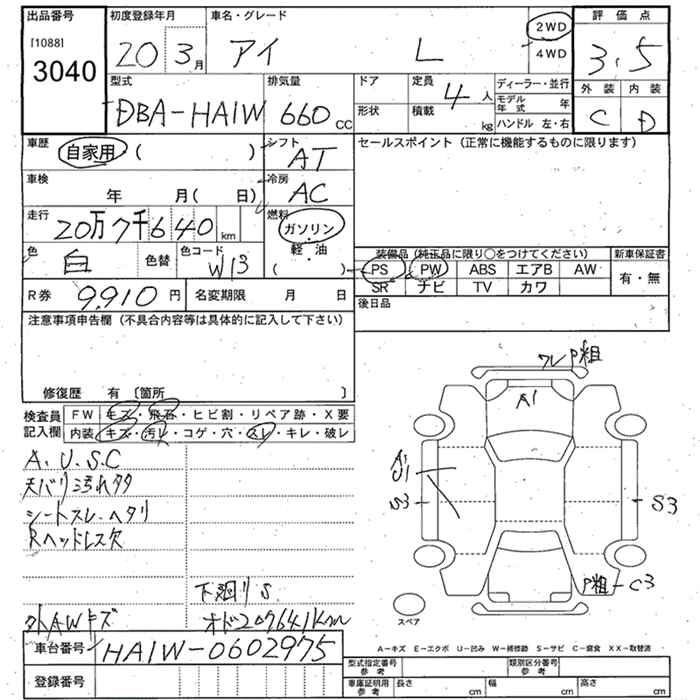 出品番号
[1088]
3040
初度登録年月
20 3月
車名・グレード
アイ L
2WD
4WD
評価点
3.5
外装 内装
C D
型式
DBA-HA1W
排気量
660 CC
ドア
形状
定員
4人
積載
kg
ディーラー・並行
モデル年式 年
ハンドル 左・右
車歴
自家用 ( )
シフト
AT
セールスポイント (正常に機能するものに限ります)
車検
年 月( 日)
冷房
AC
走行
20万7千640 km
燃料
ガソリン・
軽・油
( )
色
白 色替
色コード
W13
装備品 (純正品に限り○をつけてください)
PS PW ABS エアB AW
SR ナビ TV カワ
新車保証書
有・無
R券 9910 円
名変期限 月 日
後日品
注意事項申告欄 (不具合内容等は具体的に記入して下さい)
修復歴 有 〔箇所 〕
検査員
記入欄
FW キズ・飛石・ヒビ割・リペア跡・X要
内装 キズ・汚レ・コゲ・穴・スレ・キレ・破レ
A.U.S.C
天バリ汚れ多
シートスレ、ヘタリ
Rヘッドレス欠
下廻りS
外AWキズ
オド207641km
ワレP粗
A1
A1
U1
S3
S3
P粗-C3
スペア
車台番号
HA1W-0602975
登録番号
A-キズ E-エクボ U-凹み W-補修跡 S-サビ C-腐食 XX-取替済
型式指定番号
参考
類別区分番号
参考
車庫証明用
参考
長さ cm
幅 cm
高さ cm